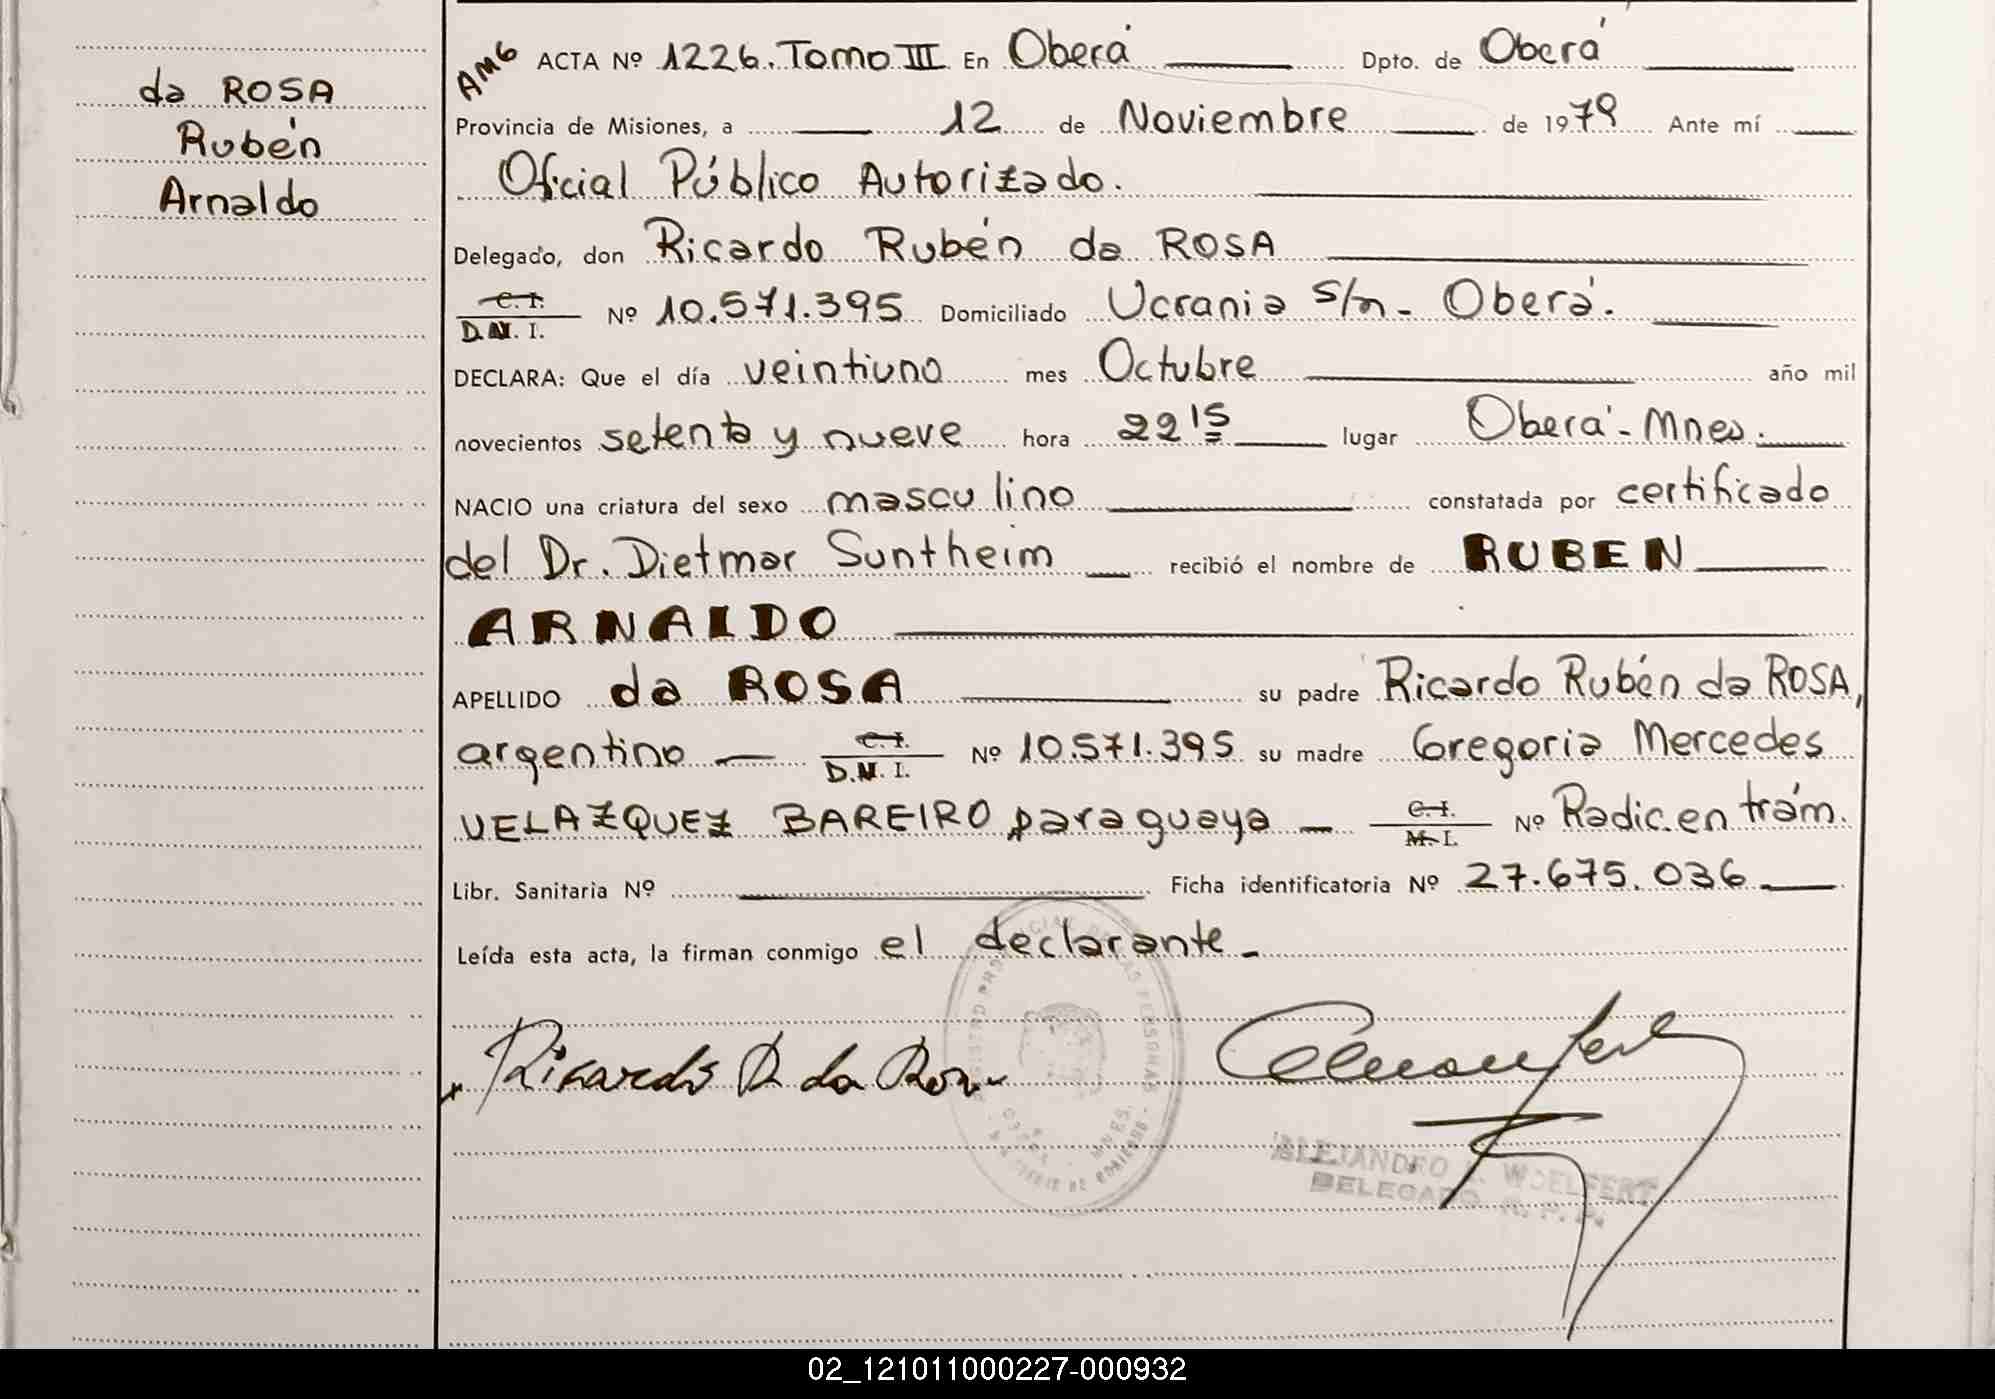 da ROSA
Rubén
Arnaldo
AMG ACTA Nº 1226. Tomo III En Oberá Dpto. de Oberá
Provincia de Misiones, a 12 de Noviembre de 1979 Ante mí
Oficial Público Autorizado.
Delegado, don Ricardo Rubén da ROSA
C. I.
D.N. I. Nº 10.571.395 Domiciliado Ucrania s/n - Oberá.
DECLARA: Que el día veintiuno mes Octubre año mil
novecientos setenta y nueve hora 22 15 lugar Oberá - Mnes.
NACIO una criatura del sexo masculino constatada por certificado
del Dr. Dietmar Suntheim recibió el nombre de RUBEN
ARNALDO
APELLIDO da ROSA su padre Ricardo Rubén da ROSA,
argentino — C. I. / D.N. I. Nº 10.571.395 su madre Gregoria Mercedes
VELAZQUEZ BAREIRO paraguaya — C. I. / M. I. Nº Radic. en trám.
Libr. Sanitaria Nº Ficha identificatoria Nº 27.675.036
Leída esta acta, la firman conmigo el declarante -
Ricardo R da Rosa
ALEJANDRO WOELFERT
DELEGADO R. P. P.
02_121011000227-000932